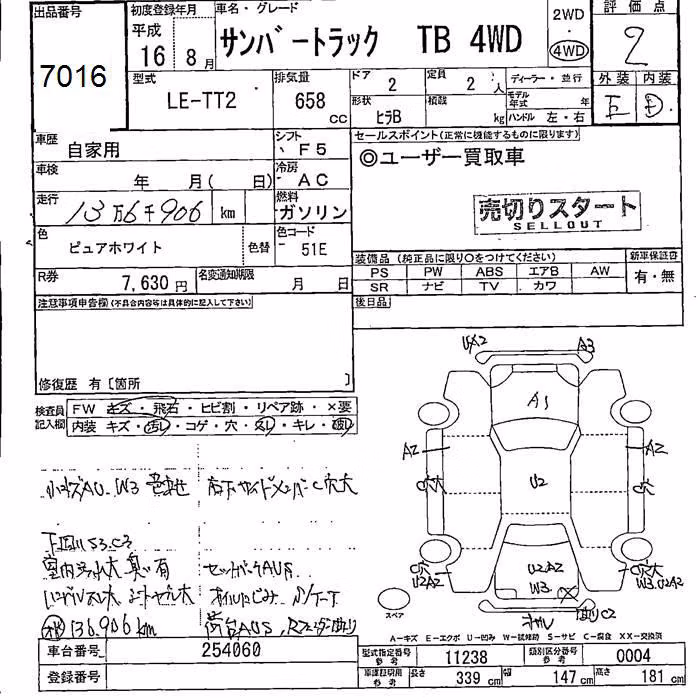 出品番号
7016
初度登録年月
平成
16年 8月
車名・グレード
サンバートラック TB 4WD
2WD
・
4WD
評価点
2
外装 内装
E D
型式
LE-TT2
排気量
658
cc
ドア
2
定員
2人
形状
ヒラB
積載
kg
ディーラー・並行
モデル年式 年
ハンドル 左・右
車歴
自家用
シフト
F5
車検
年 月( 日)
冷房
AC
走行
13万6千906 km
燃料
ガソリン
色
ピュアホワイト
色替
色コード
51E
R券
7,630円
名変通知期限
月 日
セールスポイント(正常に機能するものに限ります)
◎ユーザー買取車
売切りスタート
SELLOUT
装備品(純正品に限り○をつけてください)
PS PW ABS エアB AW
SR ナビ TV カワ
新車保証書
有・無
後日品
注意事項申告欄(不具合内容等は具体的に記入して下さい)
修復歴 有〔箇所 〕
検査員
記入欄
FW キズ・飛石・ヒビ割・リペア跡・×要
内装 キズ・汚レ・コゲ・穴・スレ・キレ・破レ
UA2 A3
A1
A2 A2
U2
C穴 C穴
U2A2
W3
C穴
U2A2
C穴大
W3.U2A2
曲りC2
スペア
小キズAU W3
下回りS3.C3
136,906km
A-キズ E-エクボ U-凹み W-試補跡 S-サビ C-腐食 XX-交換済
車台番号 254060
登録番号
型式指定番号
参考
11238
類別区分番号
参考
0004
車庫証明用
参考
長さ 339 cm 幅 147 cm 高さ 181 cm